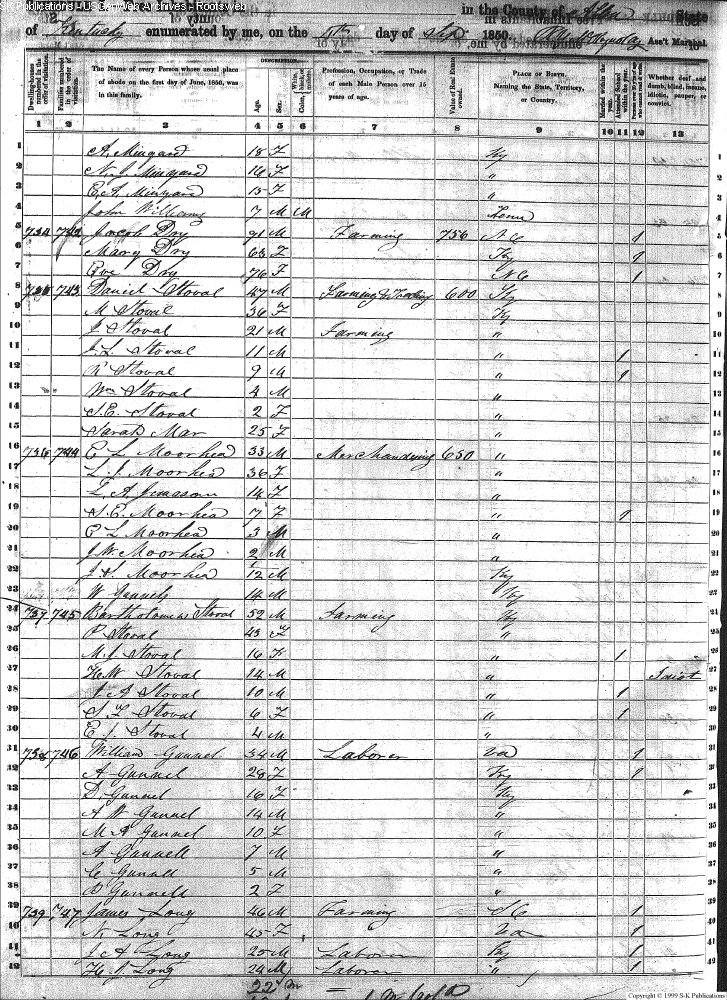 SK Publications - USGenWeb Archives - Rootsweb
in the County of Allen State
of Kentucky enumerated by me, on the day of Sep 1850. Ass't Marshal
DESCRIPTION.
Dwelling-houses numbered in the order of visitation. Families numbered in the order of visitation. The Name of every Person whose usual place of abode on the first day of June, 1850, was in this family. Age. Sex. White, Color, black, or mulatto. Profession, Occupation, or Trade of each Male Person over 15 years of age. Value of Real Estate owned. PLACE OF BIRTH. Naming the State, Territory, or Country. Married within the year. Attended School within the year. Whether deaf and dumb, blind, insane, idiotic, pauper, or convict.
1 2 3 4 5 6 7 8 9 10 11 12 13
1 A. Minyard 18 F Ky 1
2 N. J. Minyard 16 F " 2
3 E. A. Minyard 15 F " 3
4 John Williams 7 M M Tenn 4
5 734 742 Jacob Dry 91 M Farming 756 N C 1 5
6 Mary Dry 63 F Ky 1 6
7 Eve Dry 76 F N C 1 7
8 743 Daniel Stoval 47 M Farming & Trading 600 Ky 8
9 M Stoval 36 F Ky 9
10 J Stoval 21 M Farming " 10
11 J. L. Stoval 11 M " 1 11
12 R Stoval 9 M " 1 12
13 Wm Stoval 4 M " 13
14 S. E. Stoval 2 F " 14
15 Sarah Mar 25 F "
16 736 744 E L Moorhead 33 M Merchandising 650 " 16
17 L. J. Moorhead 36 F " 17
18 L. A. 14 F "
19 S. E. Moorhead 7 F " 1 19
20 E L Moorhead 3 M "
21 J. W. Moorhead 2 M "
22 J. S. Moorhead 12 M Ky
23 W Gunnels 14 M Ky
24 737 745 Bartholomew Stoval 52 M Farming Ky
25 P Stoval 43 F "
26 M. J. Stoval 16 F " 1
27 H. W Stoval 14 M " Idiot
28 J. A Stoval 10 M " 1
29 S. F. Stoval 6 F " 1
30 E. J. Stoval 4 M "
31 738 746 William Gunnel 34 M Laborer Va 1
32 A Gunnel 28 F Ky 1
33 D. Gunnel 16 F Ky
34 A W Gunnel 14 M "
35 M A Gunnel 10 F "
36 A Gunnell 7 M "
37 C Gunnell 5 M "
38 D Gunnell 2 F "
39 739 747 James Long 46 M Farming S C 1
40 N. Long 45 F Va 1
41 J. A Long 25 M Laborer Ky 1
42 H. J. Long 24 M Laborer " 1
22 m
Copyright © 1999 S-K Publications